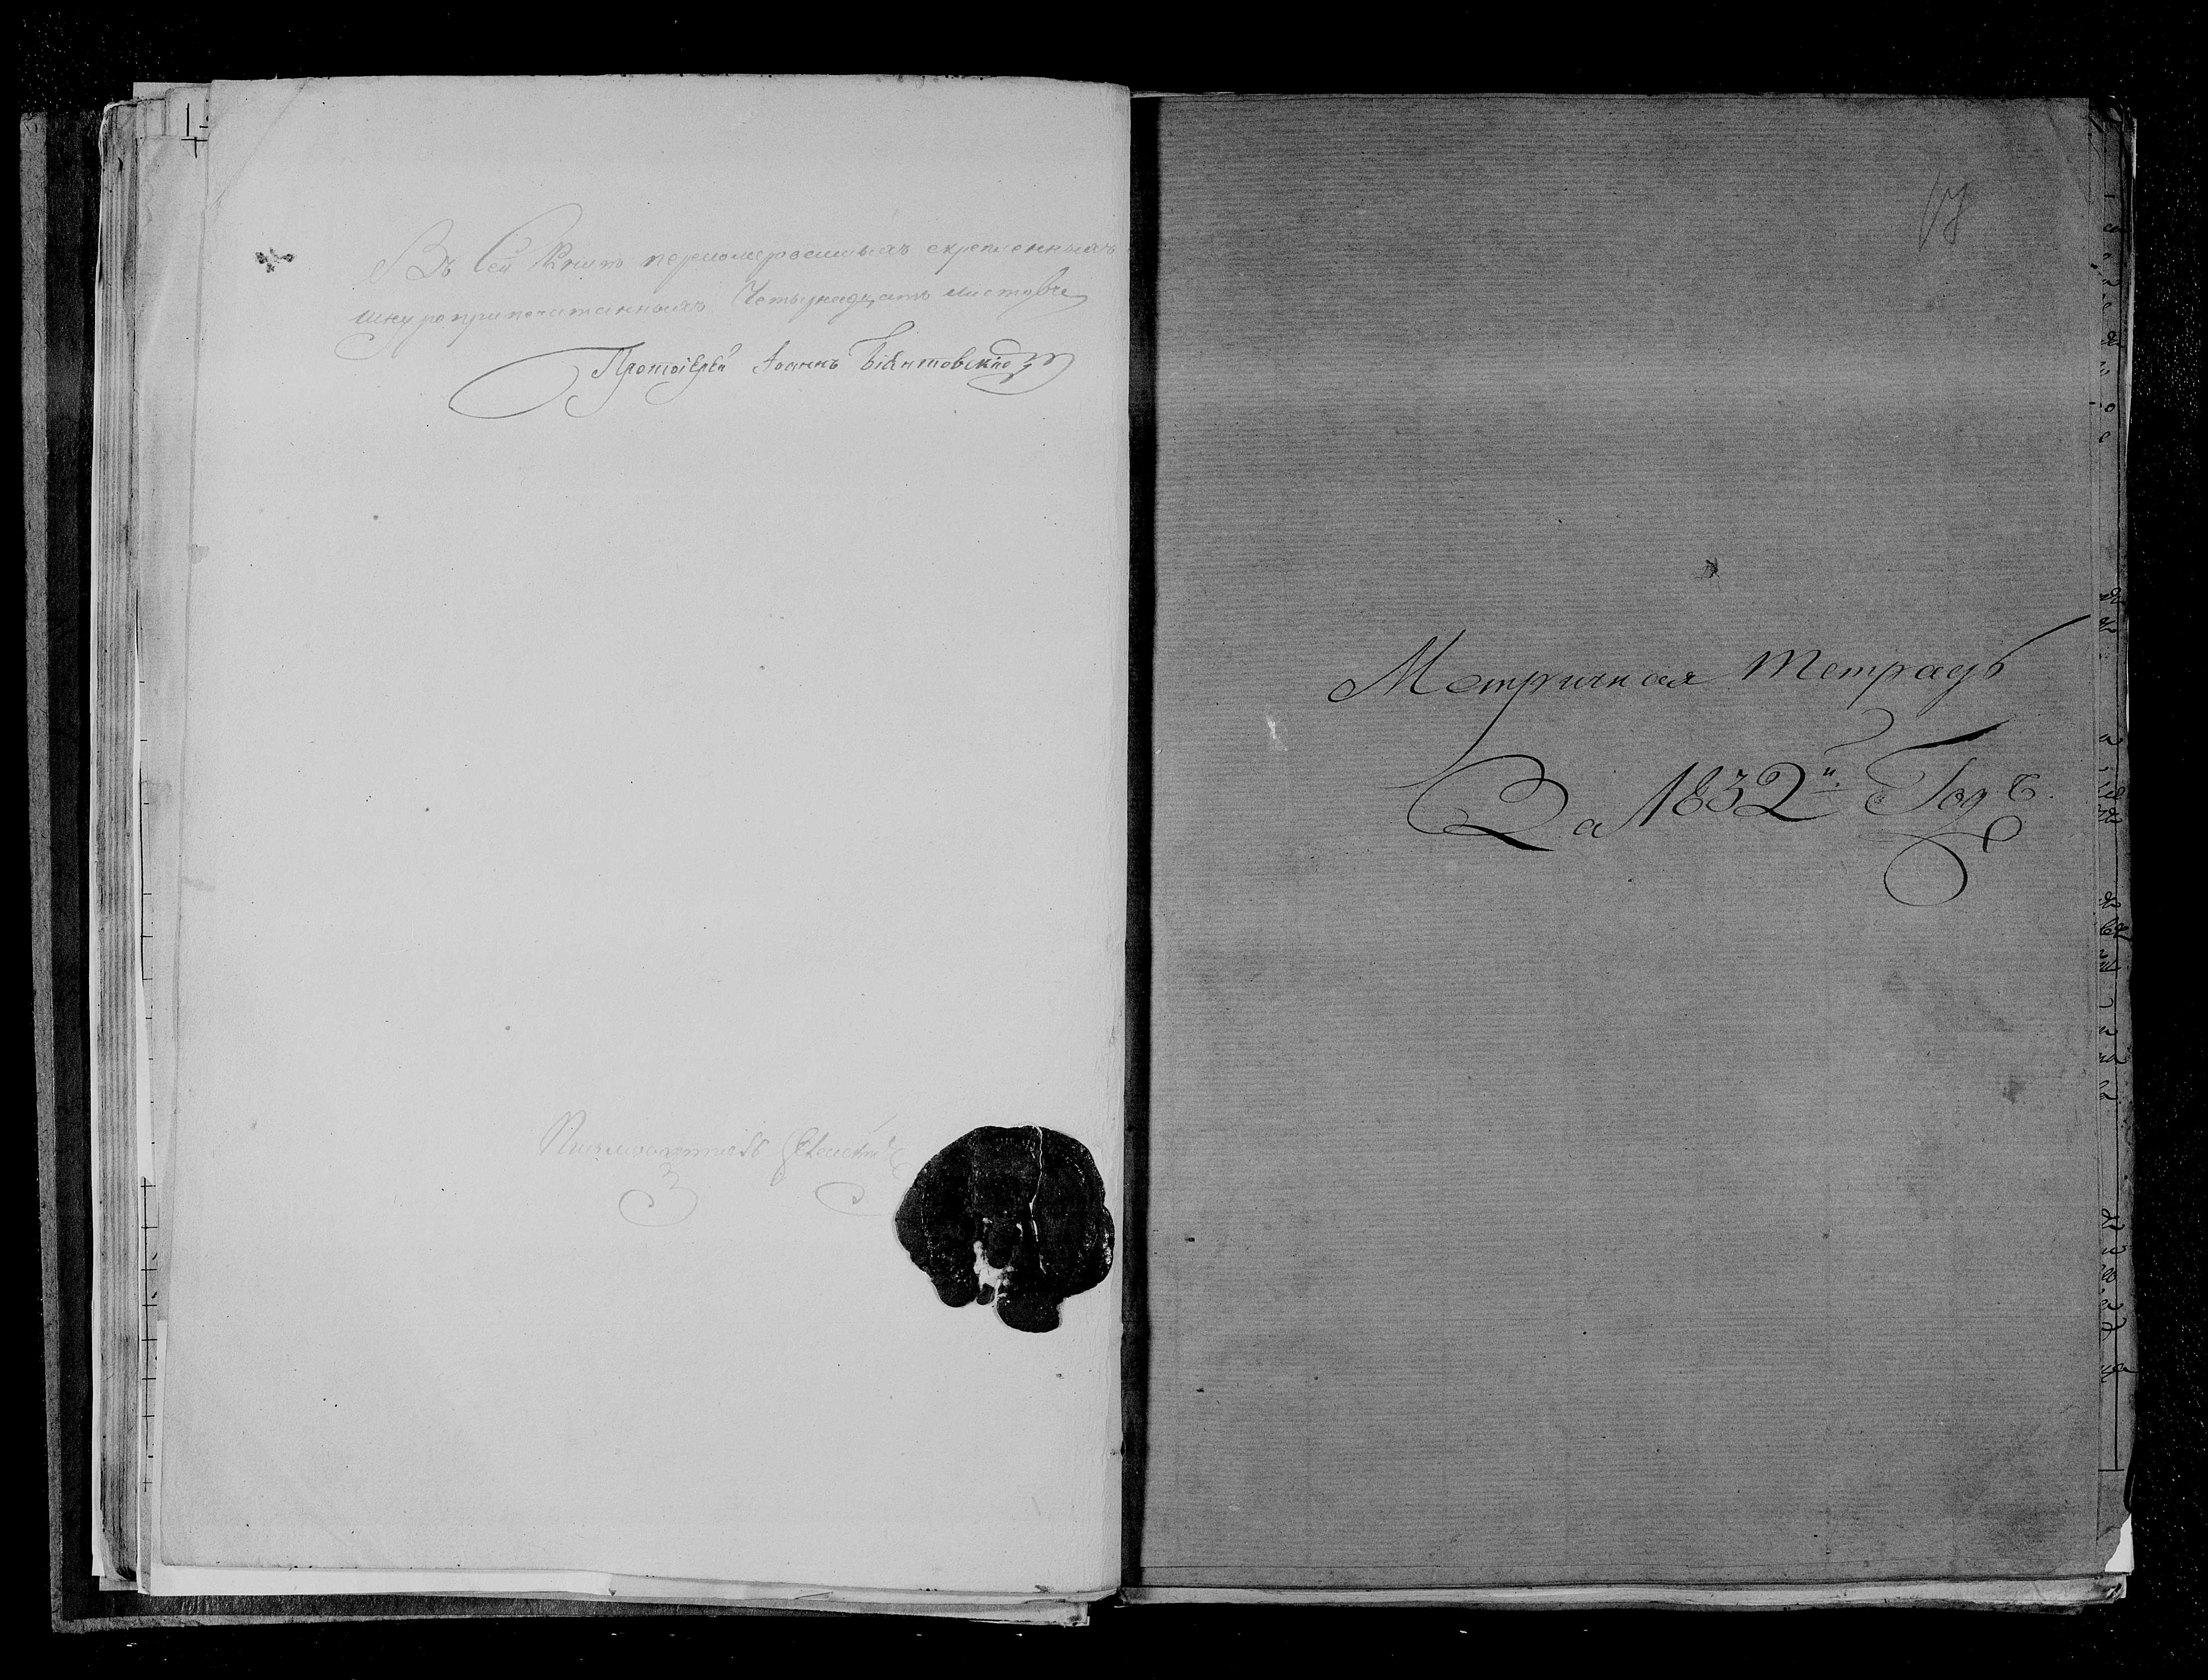 Въ сей Книгѣ перенумерованныхъ скрепленныхъ
шнуроприпечатанныхъ Четырнадцать листовъ
Протоіерей Іоаннъ
Метричная Тетрадь
За 1832й Годъ